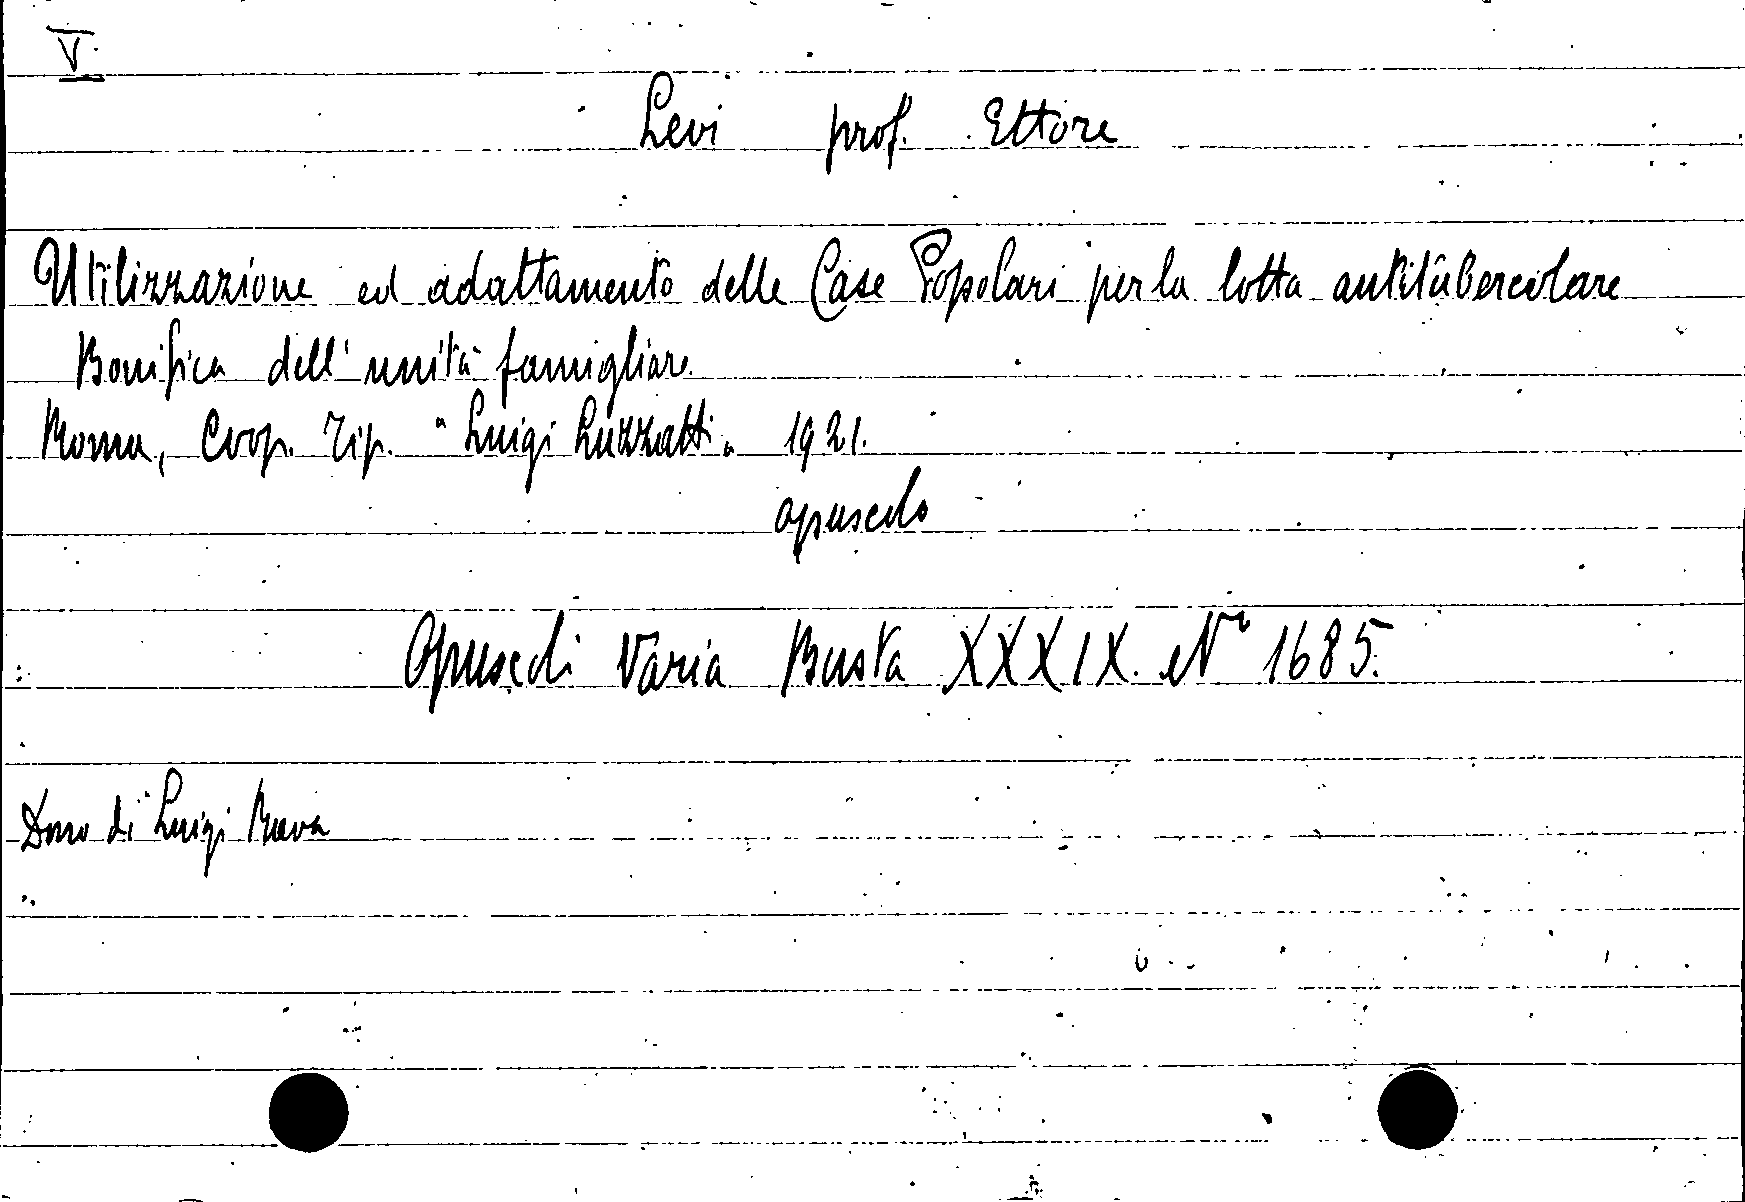 V
Levi prof. Ettore
Utilizzazione ed adattamento delle Case Popolari per la lotta antitubercolare
Bonifica dell'unità famigliare
Roma, Coop. Tip. "Luigi Luzzatti" 1921.
opuscolo
Opuscoli Varia Busta XXXIX. N° 1685.
Dono di Luigi Rava